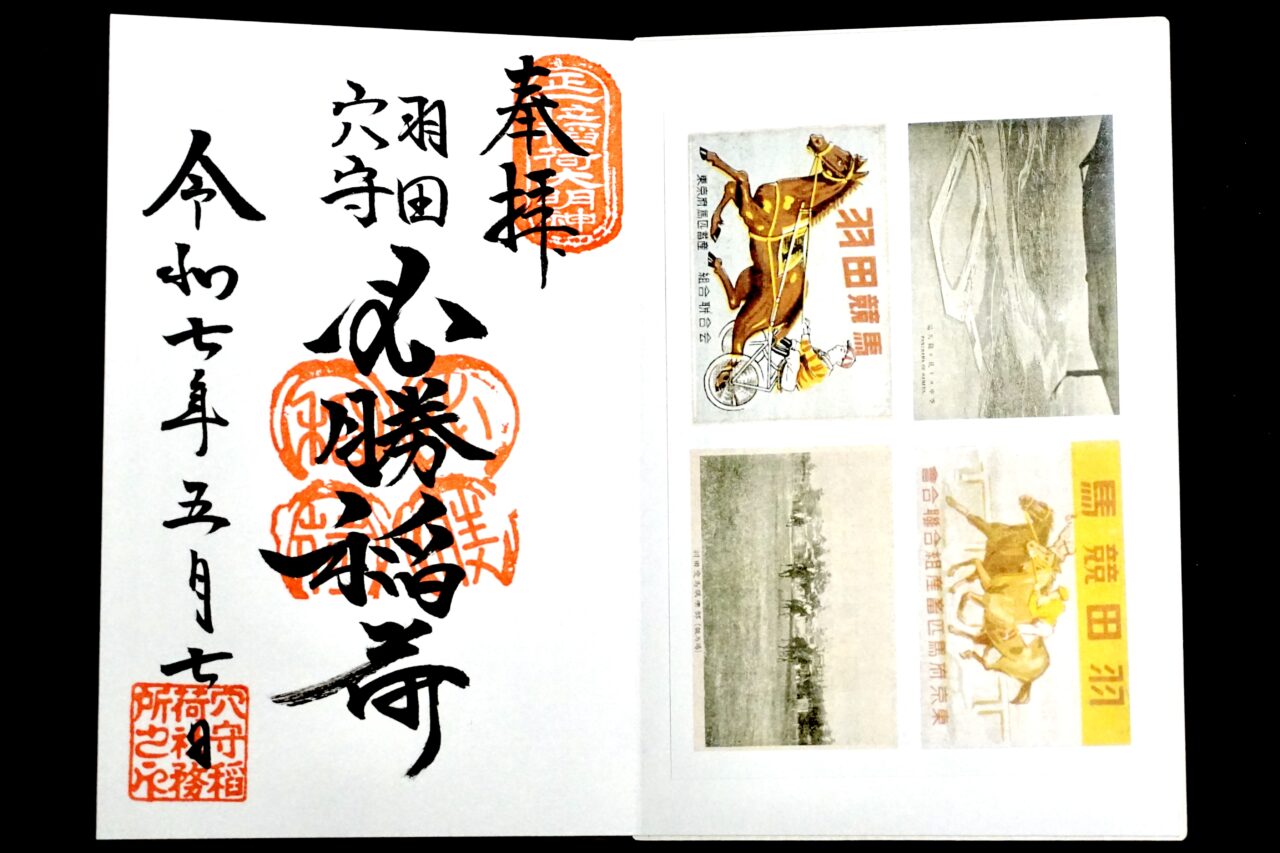 奉拝
正一位稲荷大明神
羽田
穴守
必勝稲荷
令和七年五月七日
穴守稲
荷社務
所之印
羽田競馬
東京府馬匹畜産組合聯合会
馬競田羽
會合聯合組産畜匹馬府京東